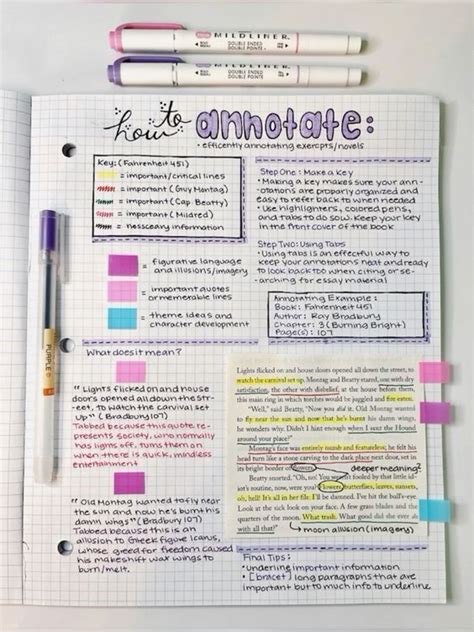 MILDLINER
DOUBLE ENDED
MILDLINER
DOUBLE ENDED
how to annotate:
• efficently annotating exercpts/novels
Key: (Fahrenheit 451)
= important/critical lines
= important (Guy Montag)
= important (Cap. Beatty)
= important (Mildred)
= nessceary information
= figurative language
and illusions/imagery
= important quotes
or memerable lines
= theme ideas and
character development
Step One: Make a Key
• Making a key makes sure your ann-
otations are properly organized and
easy to refer back to when needed
• Use highlighters, colored pens,
and tabs to do so. Keep your key
in the front cover of the book
Step Two: Using Tabs
• Using tabs is an effectful way to
keep your annotations neat and ready
to look back too when citing or se-
arching for essay material
Annotating Example:
Book: Fahrenheit 451
Author: Ray Bradbury
Chapter: 3 (Burning Bright)
Page(s): 107
PURPLE
What does it mean?
"Lights flicked on and house
doors opened all down the str-
eet, to watch the carnival set
up." (Bradbury 107)
Tabbed because this quote re-
presents society, who normally
has lights off, turns them on
when there is quick, mindless
entertainment
"Old Montag wanted to fly near
the sun and now he's burnt his
damn wings" (Bradbury 107)
Tabbed because this is an
allusion to Greek figure Icarus,
whose greed for freedom caused
his makeshift wax wings to
burn/melt.
Lights flicked on and house doors opened all down the street, to
watch the carnival set up. Montag and Beatty stared, one with dry
satisfaction, the other with disbelief, at the house before them,
this main ring in which torches would be juggled and fire eaten.
"Well," said Beatty, "Now you did it. Old Montag wanted
to fly near the sun and now that he's burnt his damn wings,
he wonders why. Didn't I hint enough when I sent the Hound
around your place?"
Montag's face was entirely numb and featureless; he felt his
head turn like a stone carving to the dark place next door, set in
its bright border of flowers.
deeper meaning?
Beatty snorted. "Oh, no! You weren't fooled by that little idi-
ot's routine, now, were you? Flowers, butterflies, leaves, sunsets,
oh, hell! It's all in her file. I'll be damned. I've hit the bull's-eye.
Look at the sick look on your face. A few grass blades and the
quarters of the moon. What trash. What good did she ever do
with all that?"
moon allusion (imagery)
Final Tips:
• underline important information
• [bracket] long paragraphs that are
important but to much info to underline